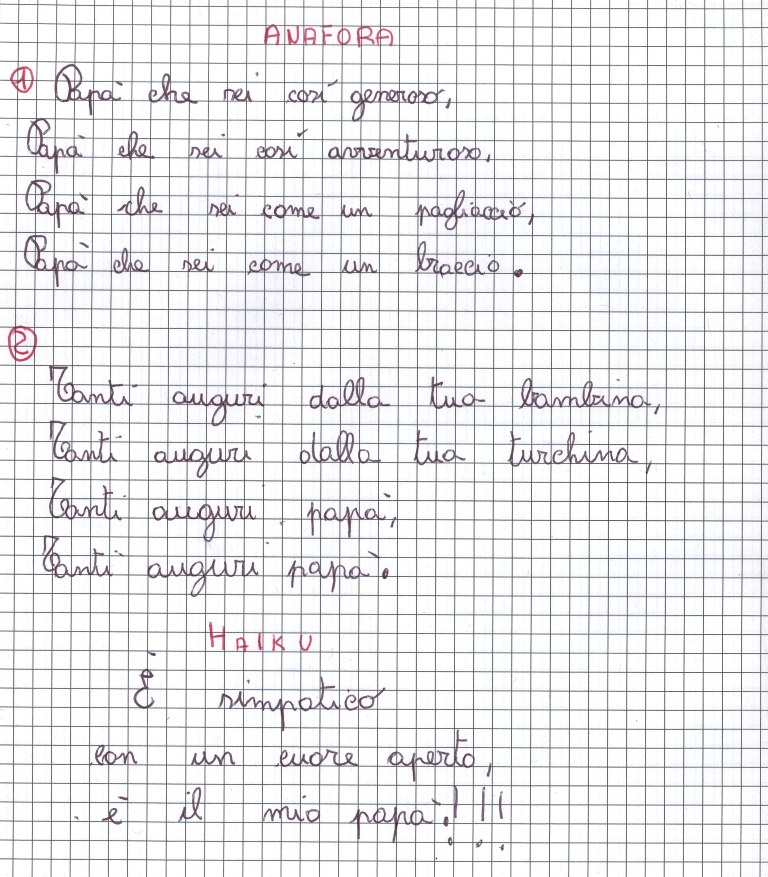 ANAFORA
1 Papà che sei così generoso,
Papà che sei così avventuroso,
Papà che sei come un pagliaccio,
Papà che sei come un braccio.
2
Tanti auguri dalla tua bambina,
Tanti auguri dalla tua turchina,
Tanti auguri papà,
Tanti auguri papà.
HAIKU
È simpatico
con un cuore aperto,
è il mio papà!!!